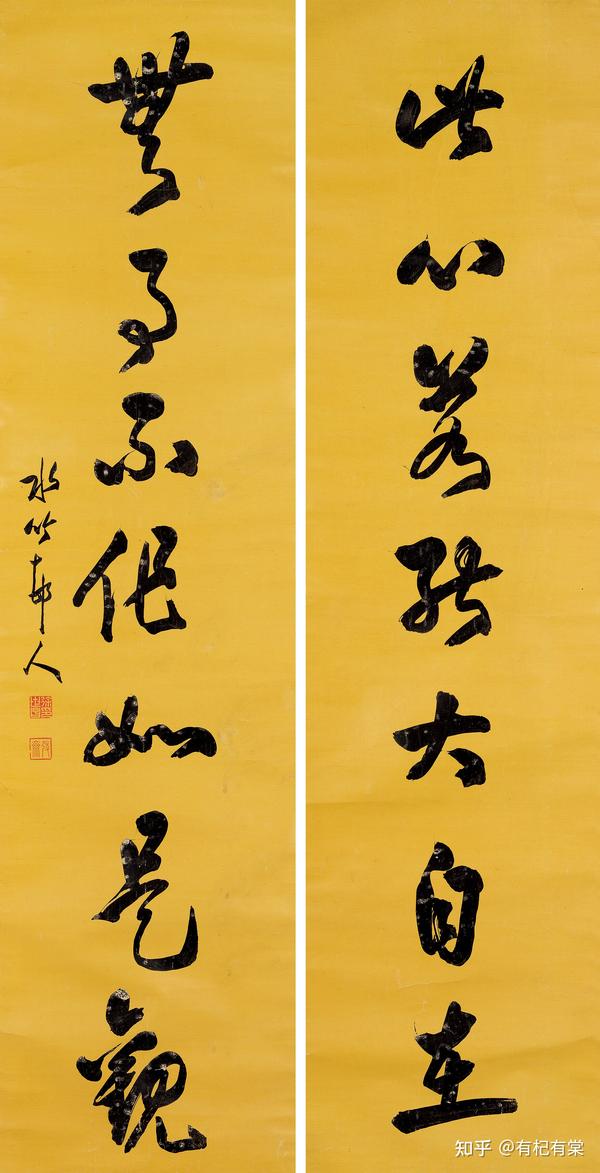 此心若能大自在
無事不作如是觀
水竹邨人
知乎 @有杞有棠